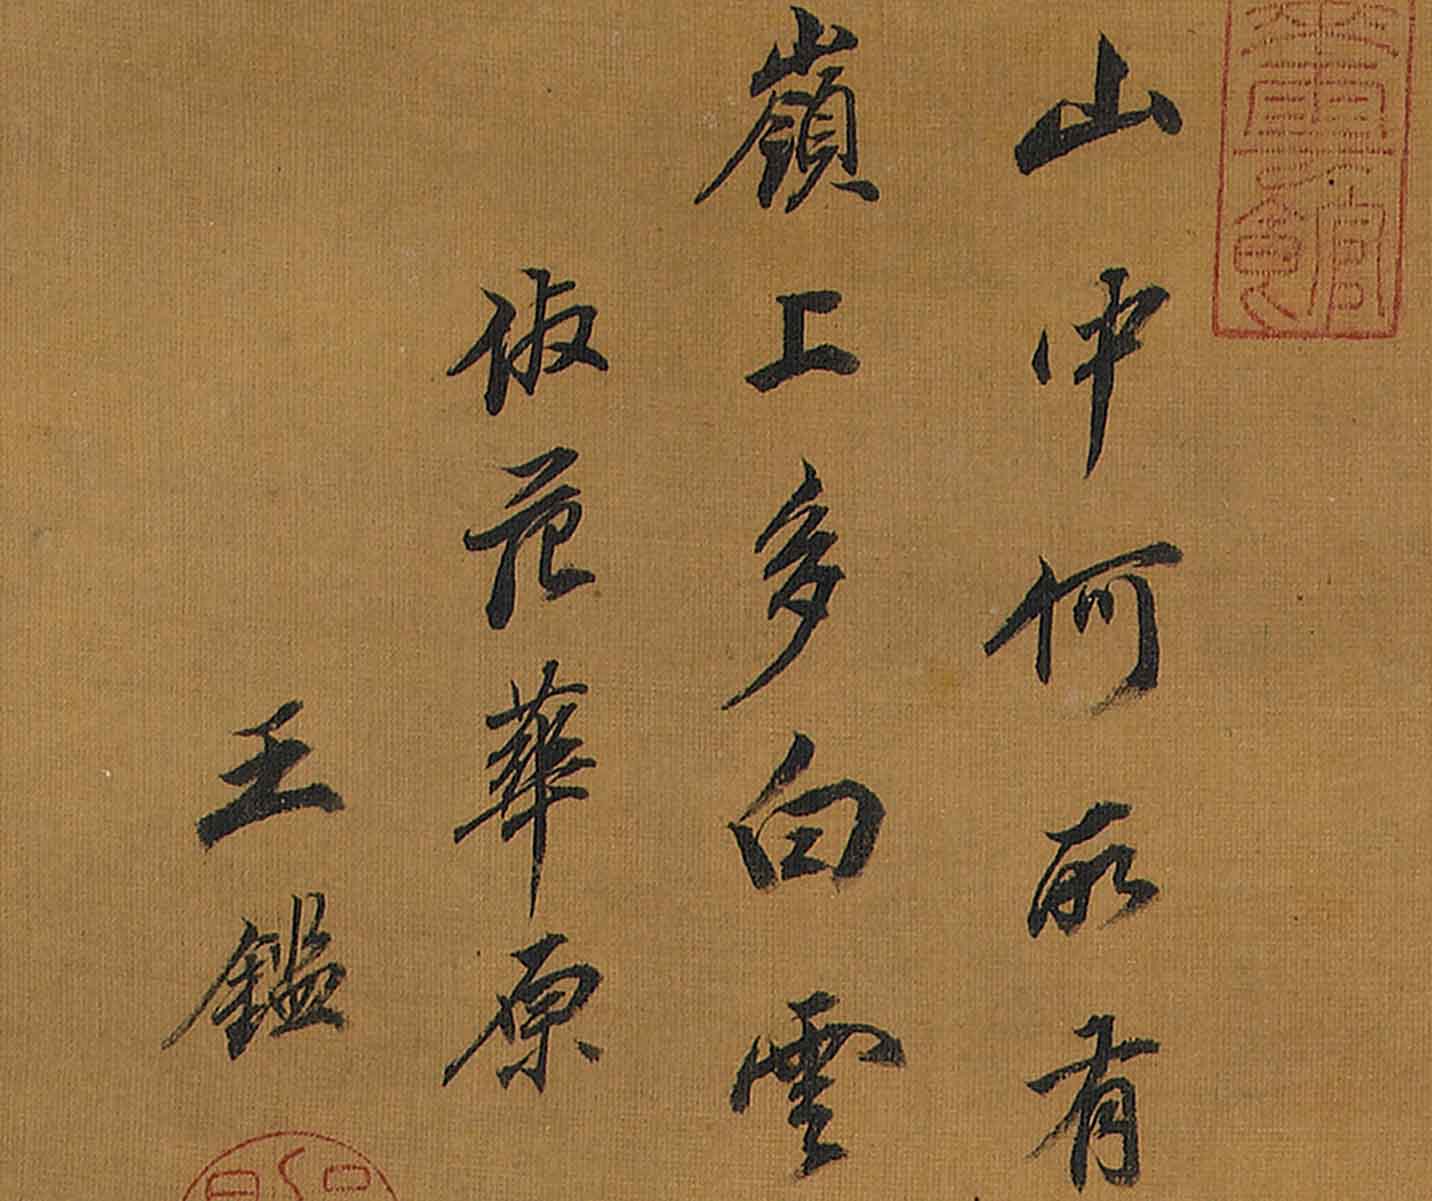 山中何所有
嶺上多白雲
倣范華原
王鑑